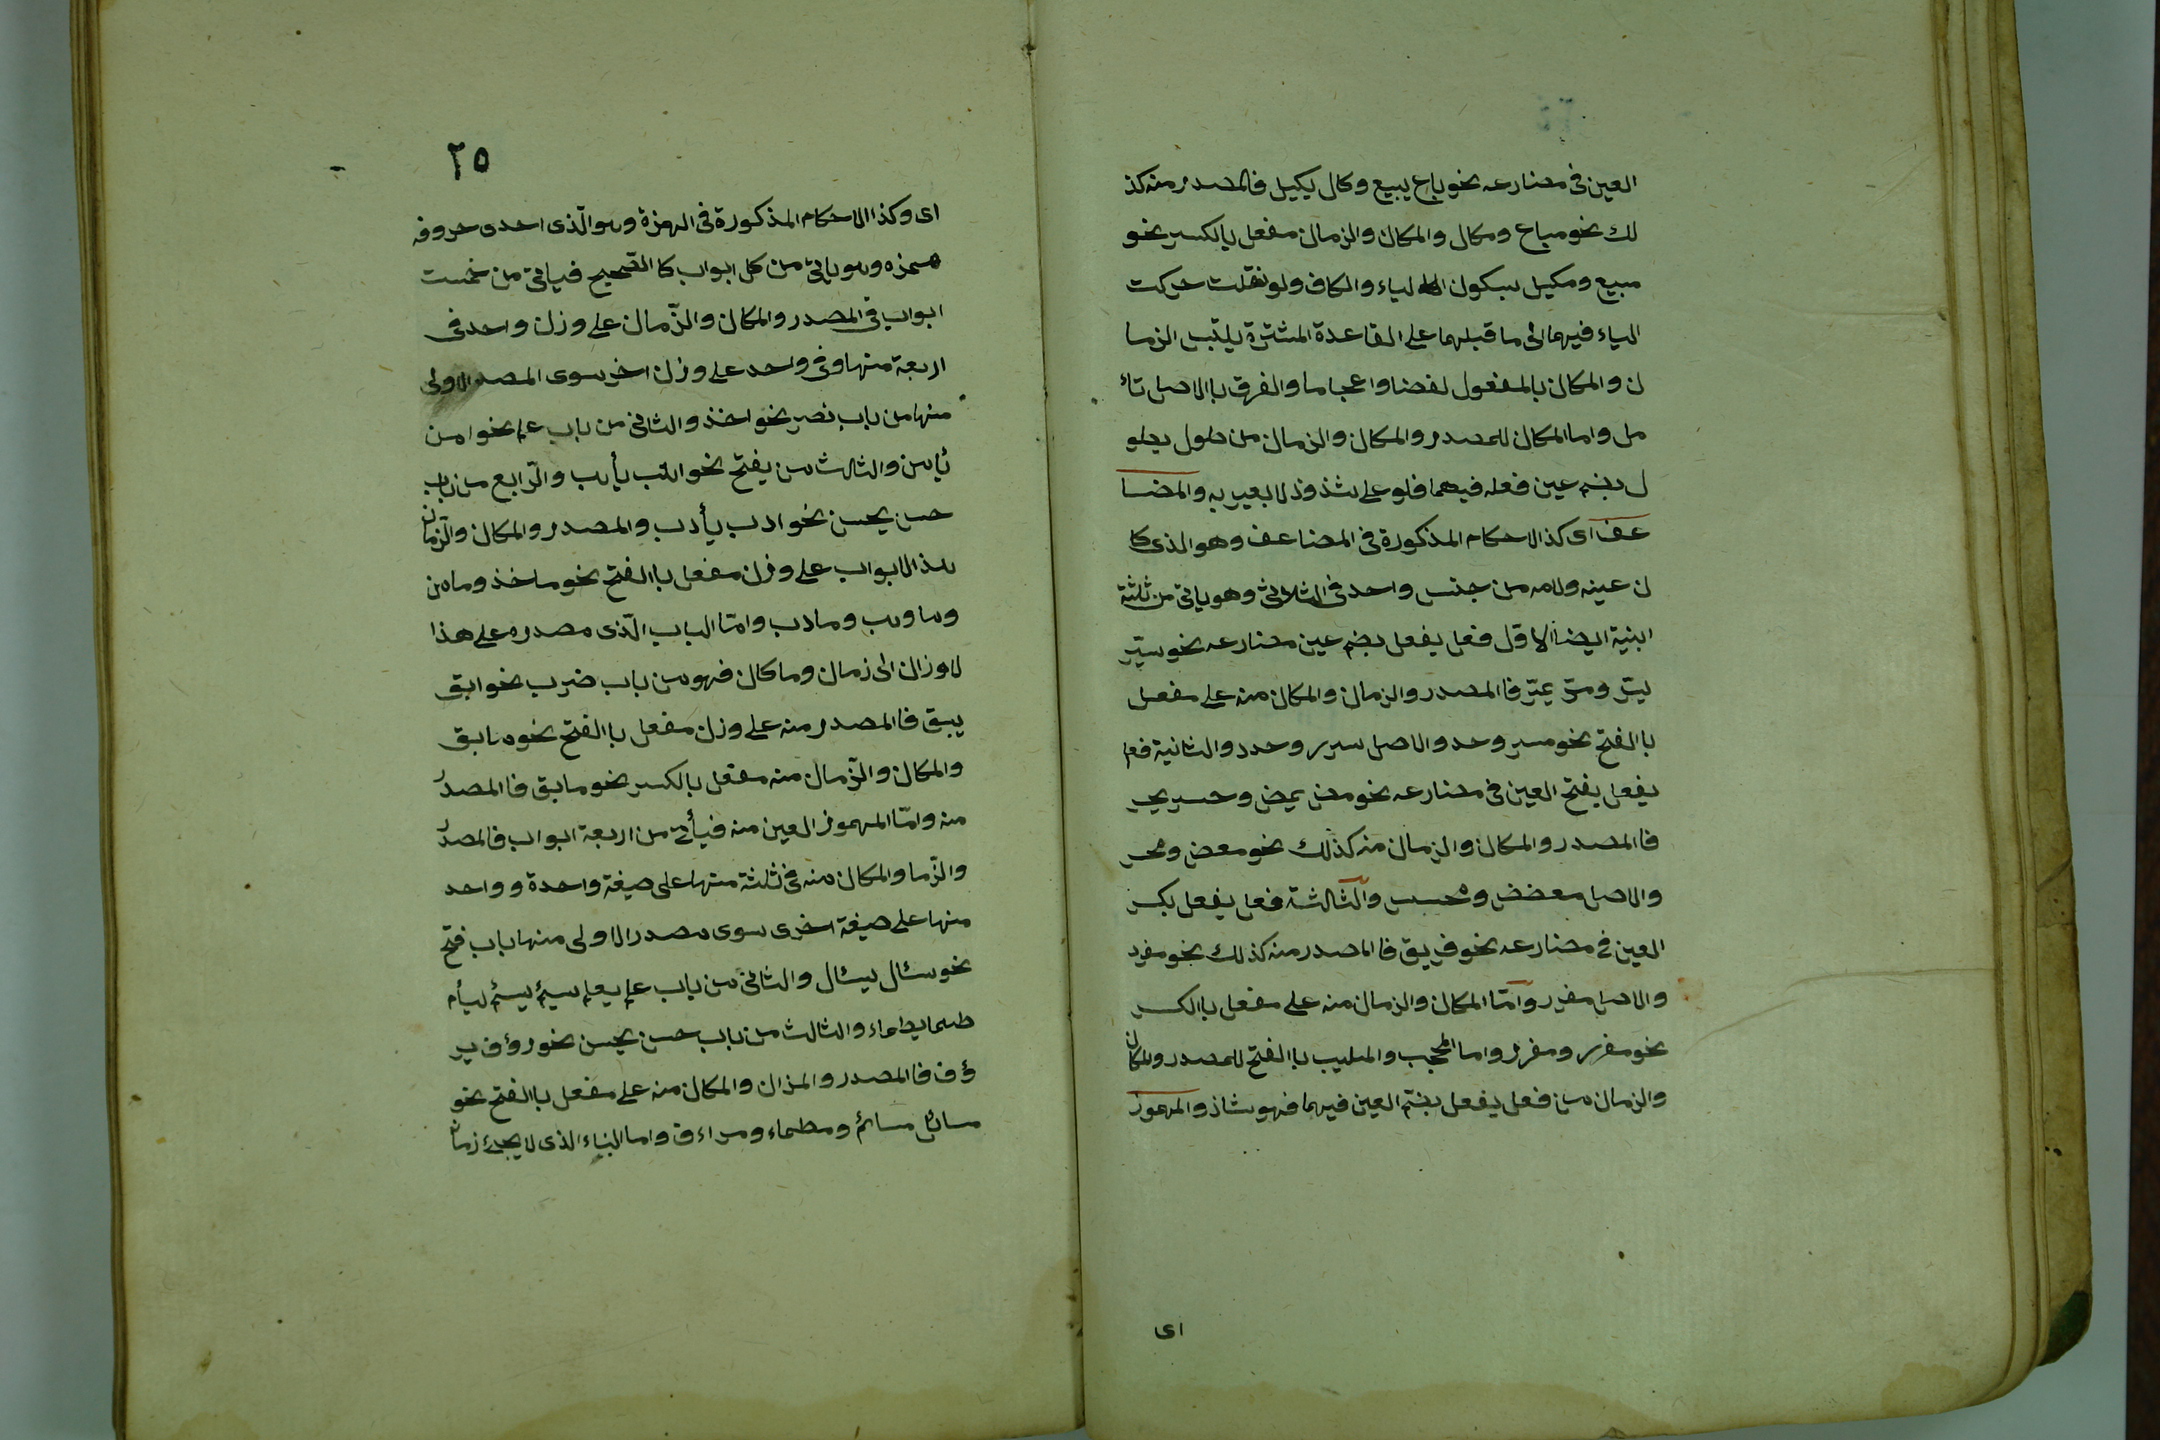 العين فى مضارعه نحو باع يبيع وكال يكيل فالمصدر منه كذ
لك نحو مباع ومكال والمكان والزمان مفعل بالكسر نحو
مبيع ومكيل بسكون الياء والكاف ولو نقلت حركت
الياء فيهما الى ما قبلهما على القاعدة يلتبس الزما
ن والمكان بالمفعول لفضا واعجاما والفرق باالاصل تاء
مل واما المكان للمصدر والمكان والزمان من طول يطو
ل بضم عين فعله فيهما فلو على شذوذ لا يعير به والمضا
عف اى كذا الاحكام المذكورة فى المضاعف وهو الذى كا
ن عينه ولامه من جنس واحد فى الثلاثى وهو ياتى من ثلثة
ابنية ايضا الاول فعل يفعل بضم عين مضارعه نحو سرّ
يسرّ ومرّ يمرّ فا المصدر والزمان والمكان منه على مفعل
باالفتح نحو مسر وحد والاصل سرر وحدد والثانية فعل
يفعل بفتح العين فى مضارعه نحو مض يمض وحس يحس
فا المصدر والمكان والزمان منه كذلك نحو معض ومحس
والاصل معضض ومحسس والثالثة فعل يفعل بكسر
العين فى مضارعه نحو فر يفر فا المصدر منه كذلك نحو مفر
والاصل مفرر وامّا المكان والزمان منه على مفعل باالكسر
نحو مفر ومفرر واما المحبب والملبب باالفتح للمصدر والمكان
والزمان من فعل يفعل بضم العين فيهما فهو شاذ والمهموز
اى
٢٥
اى وكذا الاحكام المذكورة فى الهمزة وهو الّذى احدى حروفه
همزه وهو ياتى من كل ابواب كا الصّحيح فياتى من خمست
ابواب فى المصدر والمكان والزّمان على وزن واحد فى
اربعة منها وفى واحد على وزن اخر سوى المصدر الاولى
منها من باب نصر نحو اخذ والثانى من باب علم نحو امن
يأمن والثالث من يفتح نحو اهب يأهب والرّابع من باب
حسن يحسن نحو ادب يأدب والمصدر والمكان والزّمان
هذ الابواب على وزن مفعل باالفتح نحو ماخذ ومامن
وماوهب ومادب وامّا الباب الّذى مصدره على هذا
لاوزان الى زمان وما كان فهو من باب ضرب نحو ابق
يبق فا المصدر منه على وزن مفعل باالفتح نحو مابق
والمكان والزّمان منه مفعل بالكسر نحو مابق فا المصدر
منه وامّا المهموز العين منه فيأتى من اربعة ابواب فالمصدر
والزّما والمكان منه فى ثلثة منها على صيغة واحدة وواحد
منها على صيغة اخرى سوى مصدر الاولى منها باب فتح
نحو سئال يسئال والثانى من باب علم يعلم سيم يسئم ليأم
طما يطماء والثالث من باب حسن يحسن نحو رؤف ير
ؤف فا المصدر والمزان والمكان منه على مفعل باالفتح نحو
مسائل مسائم ومطماء ومراءف واما البناء الذى لا يجئ زمان